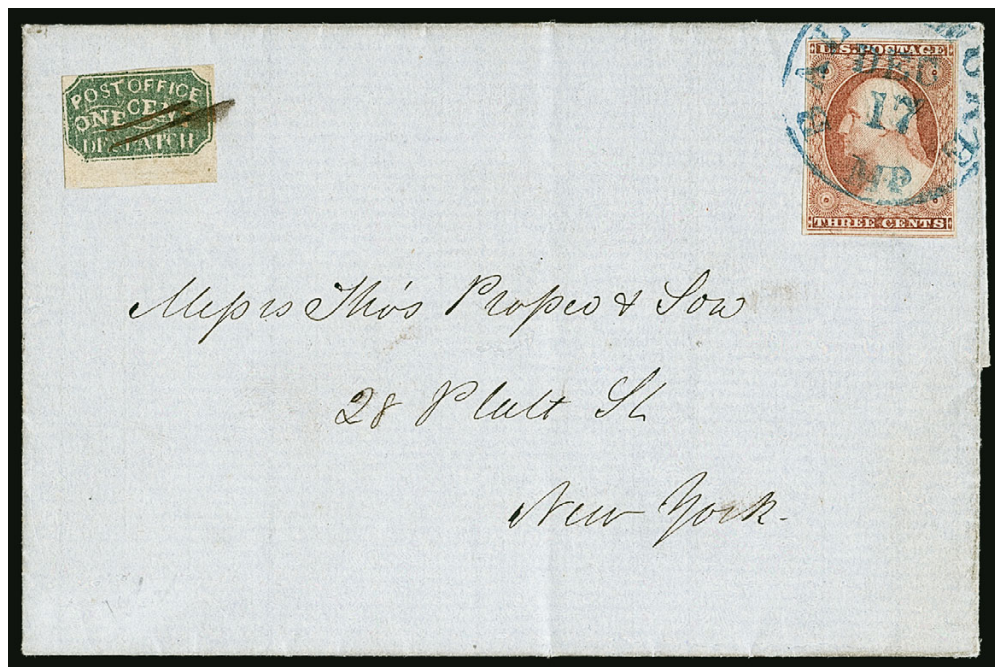 POST OFFICE
ONE CENT
DESPATCH
U.S. POSTAGE
THREE CENTS
DEC
17
MD
Messrs Thos Propeo & Son
28 Platt St
New York.